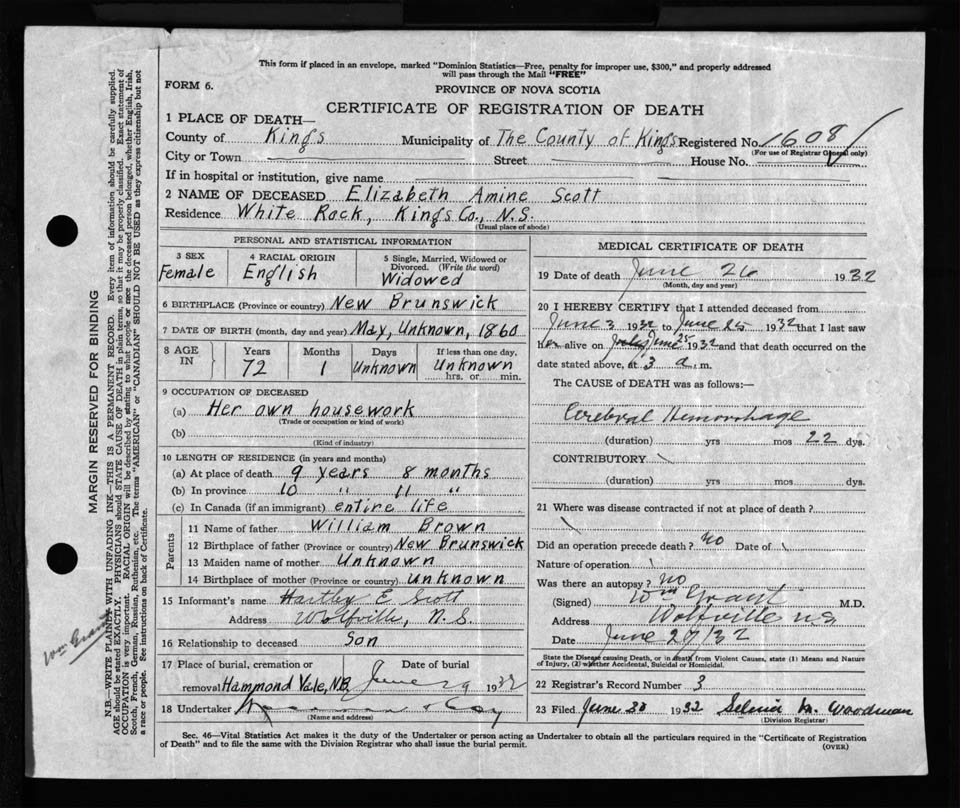 This form if placed in an envelope, marked "Dominion Statistics—Free, penalty for improper use, $300," and properly addressed
will pass through the Mail "FREE"
FORM 6.
PROVINCE OF NOVA SCOTIA
CERTIFICATE OF REGISTRATION OF DEATH
1 PLACE OF DEATH—
County of Kings Municipality of The County of Kings Registered No. 1608
(For use of Registrar General only)
City or Town Street House No.
If in hospital or institution, give name
2 NAME OF DECEASED Elizabeth Amine Scott
Residence White Rock, Kings Co., N.S.
(Usual place of abode)
PERSONAL AND STATISTICAL INFORMATION
3 SEX 4 RACIAL ORIGIN 5 Single, Married, Widowed or
Divorced. (Write the word)
Female English Widowed
6 BIRTHPLACE (Province or country) New Brunswick
7 DATE OF BIRTH (month, day and year) May, Unknown, 1860
8 AGE IN Years Months Days If less than one day.
72 1 Unknown Unknown
hrs. or min.
9 OCCUPATION OF DECEASED
(a) Her own housework
(Trade or occupation or kind of work)
(b)
(Kind of industry)
10 LENGTH OF RESIDENCE (in years and months)
(a) At place of death 9 years 8 months
(b) In province 10 " 11 "
(c) In Canada (if an immigrant) entire life
Parents
11 Name of father William Brown
12 Birthplace of father (Province or country) New Brunswick
13 Maiden name of mother Unknown
14 Birthplace of mother (Province or country) Unknown
15 Informant's name Hartley E Scott
Address Wolfville, N.S.
16 Relationship to deceased Son
17 Place of burial, cremation or Date of burial
removal Hammond Vale, N.B. June 29 1932
18 Undertaker
(Name and address)
MEDICAL CERTIFICATE OF DEATH
19 Date of death June 26 1932
(Month, day and year)
20 I HEREBY CERTIFY that I attended deceased from
June 3 1932 to June 25 1932 that I last saw
alive on June 25 1932 and that death occurred on the
date stated above, at 3 a. m.
The CAUSE OF DEATH was as follows:—
Cerebral Hemorrhage
(duration) yrs mos 22 dys.
CONTRIBUTORY
(duration) yrs mos dys.
21 Where was disease contracted if not at place of death?
Did an operation precede death? no Date of
Nature of operation
Was there an autopsy? no
(Signed) Wm Grant M.D.
Address Wolfville N.S
Date June 27/32
State the Disease causing Death, or in death from Violent Causes, state (1) Means and Nature
of Injury, (2) whether Accidental, Suicidal or Homicidal.
22 Registrar's Record Number 3
23 Filed June 30 1932 Selena M. Woodman
(Division Registrar)
Sec. 46—Vital Statistics Act makes it the duty of the Undertaker or person acting as Undertaker to obtain all the particulars required in the "Certificate of Registration
of Death" and to file the same with the Division Registrar who shall issue the burial permit.
(OVER)
MARGIN RESERVED FOR BINDING
N.B.—WRITE PLAINLY WITH UNFADING INK—THIS IS A PERMANENT RECORD. Every item of information should be carefully supplied.
AGE should be stated EXACTLY. PHYSICIANS should STATE CAUSE OF DEATH in plain terms, so that it may be properly classified. Exact statement of
OCCUPATION is very important. RACIAL ORIGIN will be described by stating to what people or race the deceased person belonged, whether English, Irish,
Scotch, French, German, Russian, Ruthenian, etc. The terms "AMERICAN" or "CANADIAN" SHOULD NOT BE USED as they express citizenship but not
a race or people. See instructions on back of Certificate.
Wm Grant